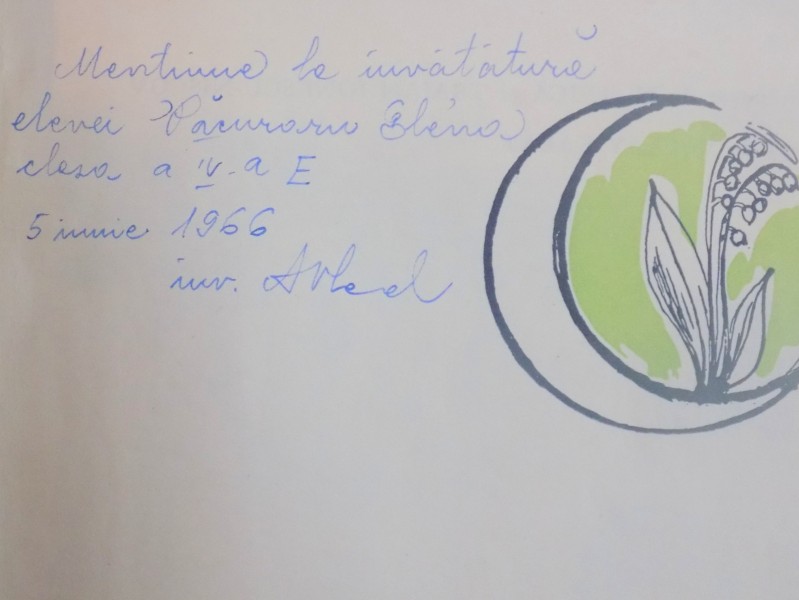 Mentiune la invătătură
elevei Păcuraru Elena
clasa a IV-a E
5 iunie 1966
inv. AVlad